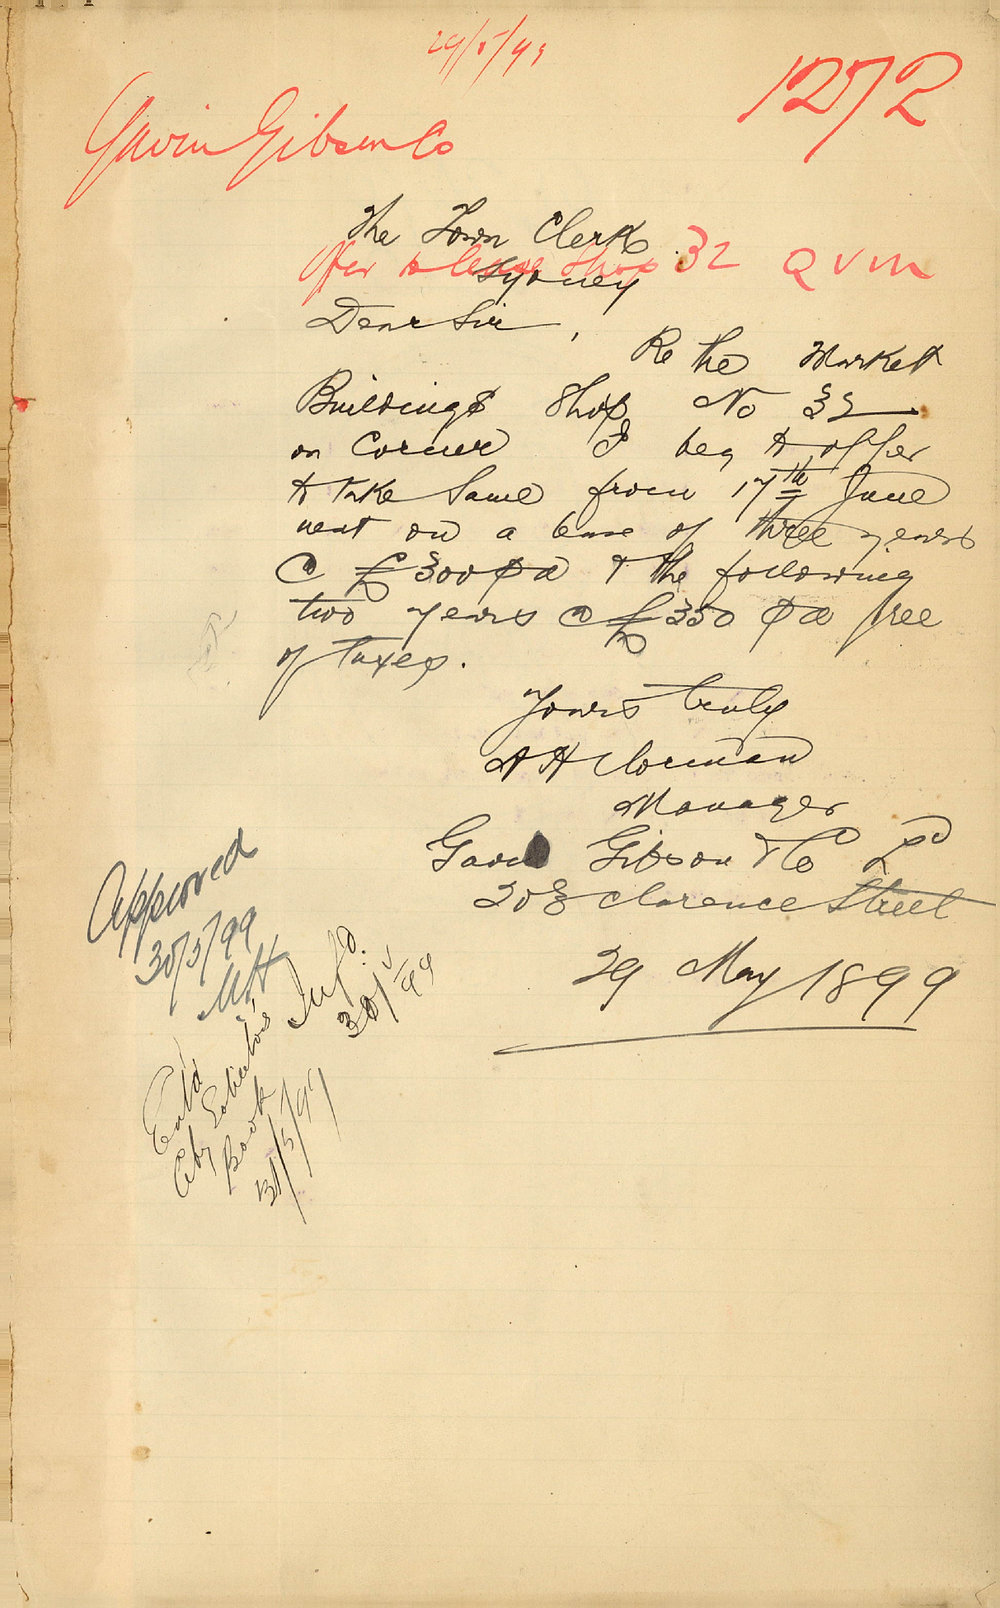 29/5/99
1272
Gavin Gibson Co
The Town Clerk
Offer to lease Shop 32 QVM
Sydney
Dear Sir,
Re the Market
Buildings Shop No 32
on Corner I beg to offer
to take same from 17th June
next on a lease of three years
@ £300 pa & the following
two years @ £350 pa free
of taxes.
Yours truly
A H
Manager
Gavin Gibson & Co Ld
203 Clarence Street
29 May 1899
Approved
30/5/99
Infd.
30/5/99
Entd
City Solicitor's
Book
31/5/99